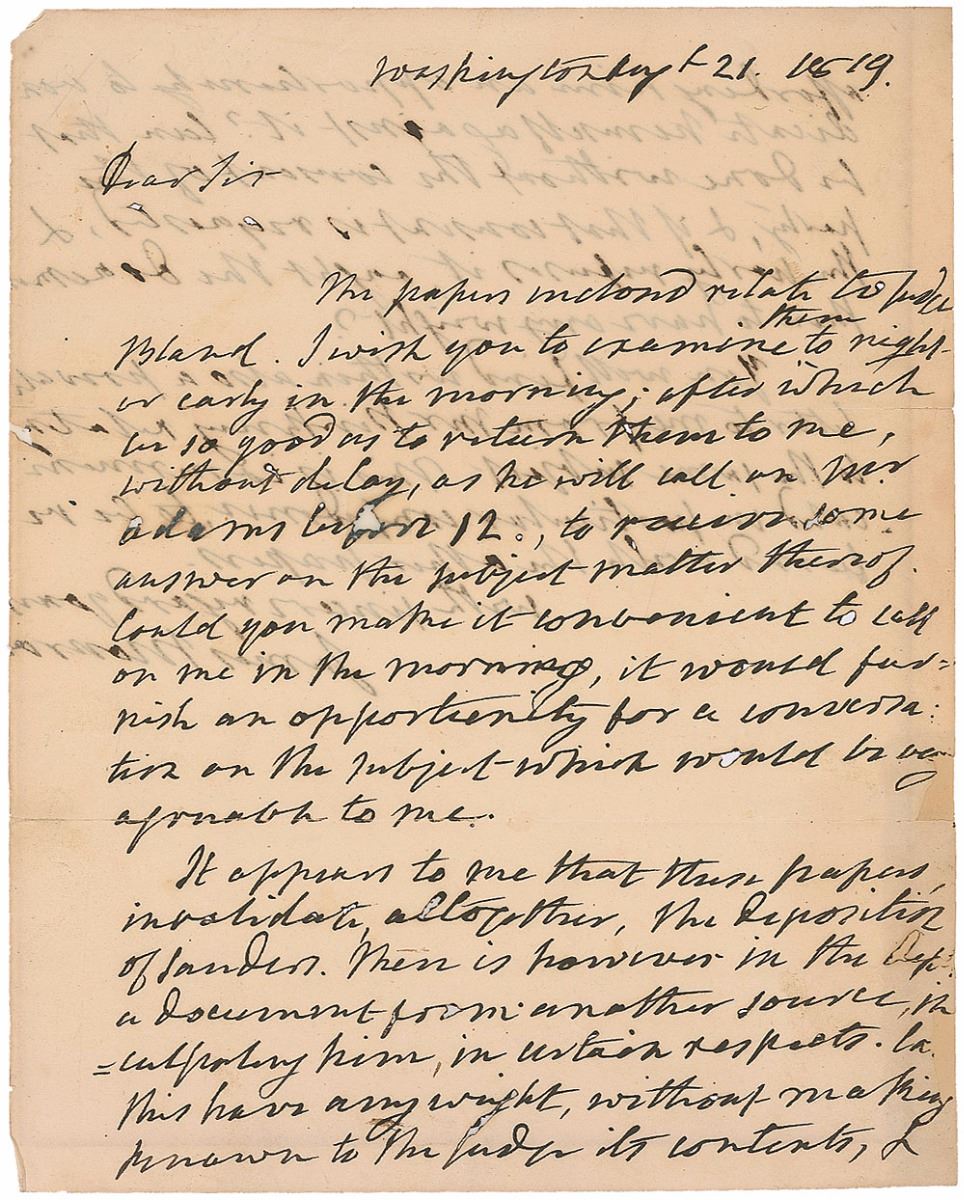 Washington Augt 21. 1819.
Dear Sir
The papers inclosd relate to Judge
them
Bland. I wish you to examine to night
or early in the morning; after which
be so good as to return them to me,
without delay, as he will call on Mr
Adams before 12., to receive some
answer on the subject matter thereof.
Could you make it convenient to call
on me in the morning, it would fur=
nish an opportunity for a conversa:
tion on the subject which would be very
agreeable to me.
It appears to me that these papers,
invalidate, altogether, the deposition
of Sanders. There is however in the Dept.
a document from another source, in
=culpating him, in certain respects. Can
this have any weight, without making
known to the Judge its contents, &